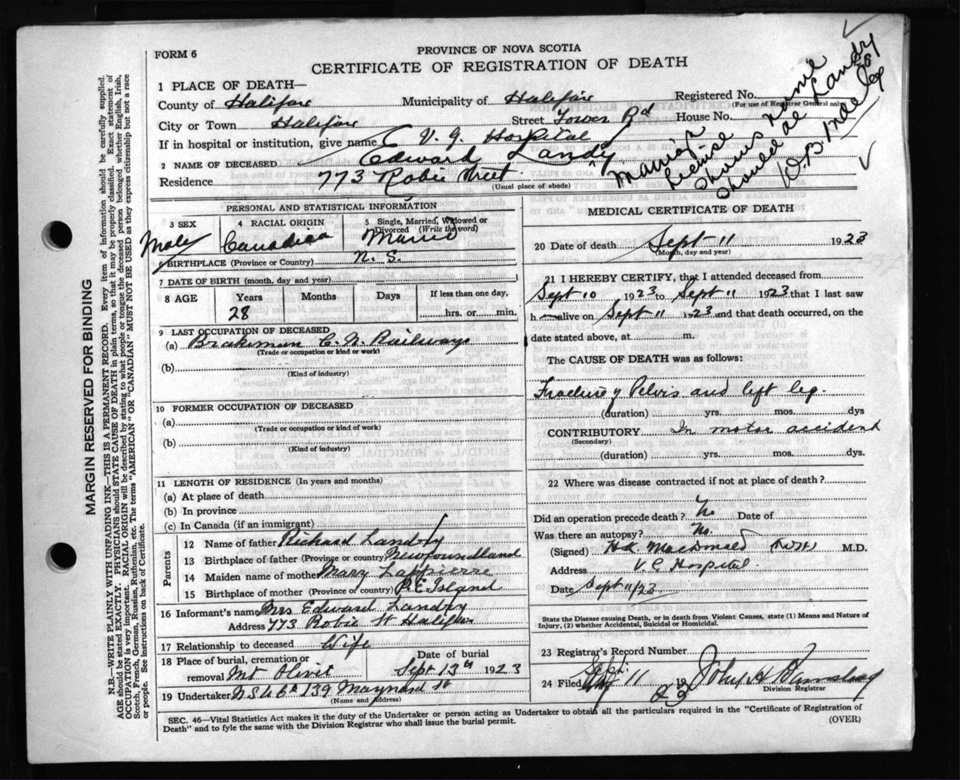 PROVINCE OF NOVA SCOTIA
FORM 6
CERTIFICATE OF REGISTRATION OF DEATH
1 PLACE OF DEATH—
County of Halifax Municipality of Halifax Registered No.
(For use of Registrar General only)
City or Town Halifax Street Tower Rd House No.
If in hospital or institution, give name V. G. Hospital
2 NAME OF DECEASED Edward Landy
Residence 773 Robie Street
(Usual place of abode)
Marriage
License
Shows name
should be Landry
MARGIN RESERVED FOR BINDING
N.B—WRITE PLAINLY WITH UNFADING INK—THIS IS A PERMANENT RECORD. Every item of information should be carefully supplied.
AGE should be stated EXACTLY. PHYSICIANS should STATE CAUSE OF DEATH in plain terms, so that it may be properly classified. Exact statement of
OCCUPATION is very important. RACIAL ORIGIN will be described by stating to what people or tongue the deceased person belonged, whether English, Irish,
Scotch, French, German, Russian, Ruthenian, etc. The terms "AMERICAN" OR "CANADIAN" MUST NOT BE USED as they express citizenship but not a race
or people. See instructions on back of Certificate.
PERSONAL AND STATISTICAL INFORMATION
3 SEX
Male
4 RACIAL ORIGIN
Canadian
5 Single, Married, Widowed or
Divorced (Write the word)
Married
BIRTHPLACE (Province or Country) N. S.
7 DATE OF BIRTH (month, day and year)
8 AGE Years Months Days If less than one day,
28 hrs. or min.
9 LAST OCCUPATION OF DECEASED
(a) Brakeman C. N. Railways
(Trade or occupation or kind or work)
(b)
(Kind of industry)
10 FORMER OCCUPATION OF DECEASED
(a)
(Trade or occupation or kind of work)
(b)
(Kind of industry)
11 LENGTH OF RESIDENCE (In years and months)
(a) At place of death
(b) In province
(c) In Canada (if an immigrant)
Parents
12 Name of father Richard Landry
13 Birthplace of father (Province or country) Newfoundland
14 Maiden name of mother Mary Lappierre
15 Birthplace of mother (Province or country) P. E. Island
16 Informant's name Mrs Edward Landry
Address 773 Robie St Halifax
17 Relationship to deceased Wife
18 Place of burial, cremation or Date of burial
removal Mt Olivet Sept 13th 1923
19 Undertaker 139 Maynard St
(Name and Address)
MEDICAL CERTIFICATE OF DEATH
20 Date of death Sept 11 1923
(Month, day and year)
21 I HEREBY CERTIFY, that I attended deceased from
Sept 10 1923 to Sept 11 1923 that I last saw
h alive on Sept 11 1923 and that death occurred, on the
date stated above, at m.
The CAUSE OF DEATH was as follows:
Fracture of Pelvis and left leg.
(duration) yrs. mos. dys
CONTRIBUTORY In motor accident
(Secondary)
(duration) yrs. mos. dys.
22 Where was disease contracted if not at place of death?
Did an operation precede death? No Date of
Was there an autopsy? No.
(Signed) MacDonald M.D.
Address V. G. Hospital
Date Sept 11/23
State the Disease causing Death, or in death from Violent Causes, state (1) Means and Nature of
Injury, (2) whether Accidental, Suicidal or Homicidal.
23 Registrar's Record Number
24 Filed 11 John H
Division Registrar
SEC. 46—Vital Statistics Act makes it the duty of the Undertaker or person acting as Undertaker to obtain all the particulars required in the "Certificate of Registration of
Death" and to fyle the same with the Division Registrar who shall issue the burial permit.
(OVER)